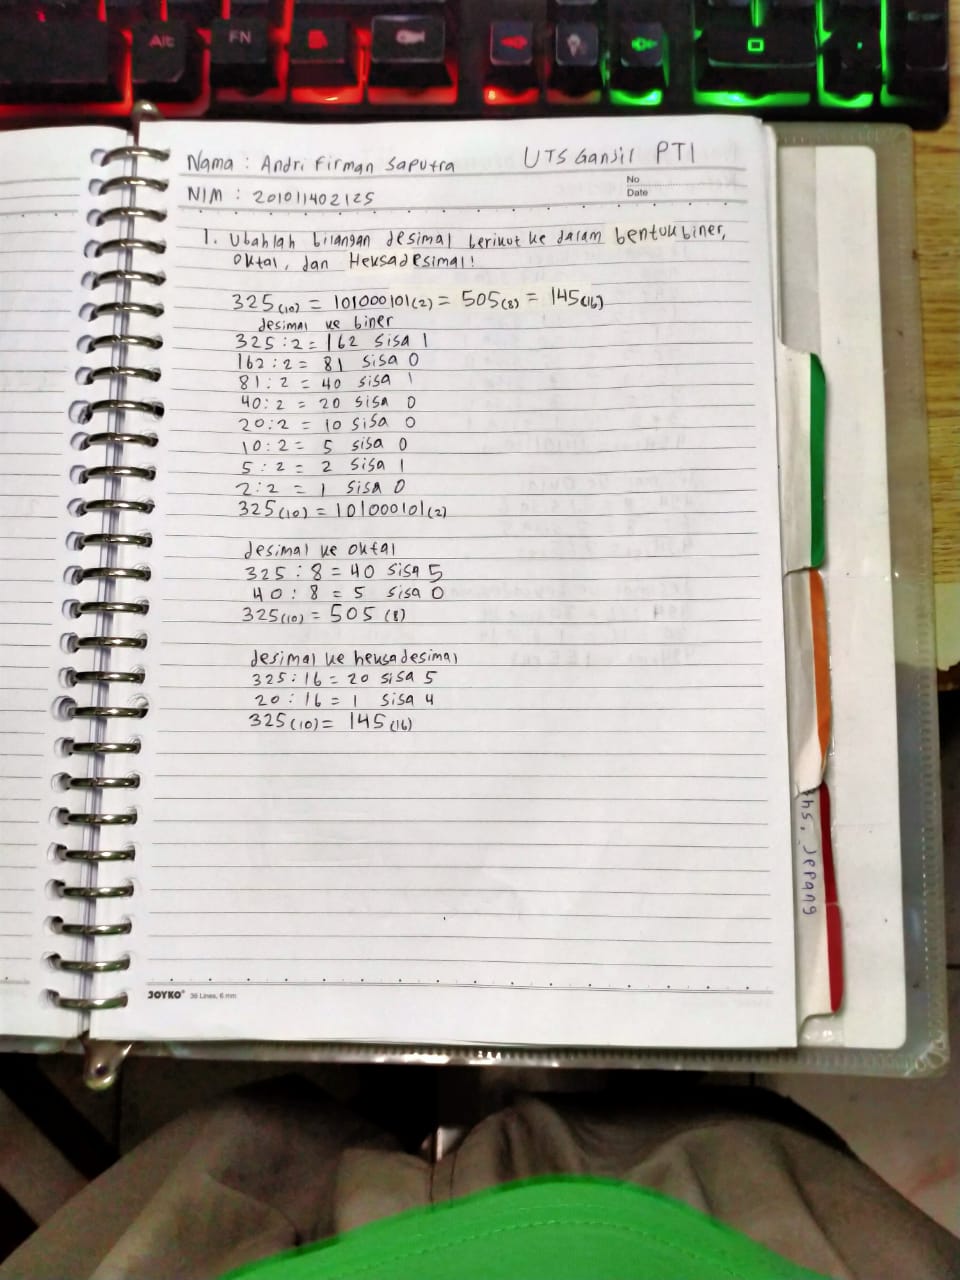 Alt
FN
Nama : Andri Firman Saputra
UTS Ganjil PTI
NIM : 201011402125
No
Date
1. Ubahlah bilangan desimal berikut ke dalam bentuk biner,
Oktal, dan Heksadesimal!
325(10) = 101000101(2) = 505(8) = 145(16)
desimal ke biner
325 : 2 = 162 sisa 1
162 : 2 = 81 sisa 0
81 : 2 = 40 sisa 1
40 : 2 = 20 sisa 0
20 : 2 = 10 sisa 0
10 : 2 = 5 sisa 0
5 : 2 = 2 sisa 1
2 : 2 = 1 sisa 0
325(10) = 101000101(2)
desimal ke oktal
325 : 8 = 40 sisa 5
40 : 8 = 5 sisa 0
325(10) = 505 (8)
desimal ke heksadesimal
325 : 16 = 20 sisa 5
20 : 16 = 1 sisa 4
325(10) = 145(16)
JOYKO® 36 Lines, 6 mm
Jepang